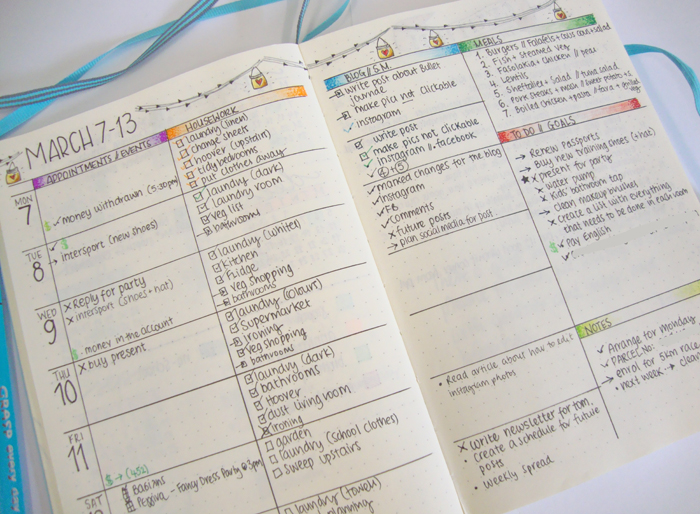 MARCH 7-13
APPOINTMENTS // EVENTS
HOUSEWORK
MON
7
✓ money withdrawn (5:30pm)
laundry (linen)
change sheets
hoover (upstairs)
tidy bedrooms
put clothes away
TUE
8
$
→ intersport (new shoes)
laundry (dark)
laundry room
veg list
bathrooms
WED
9
x Reply for party
x intersport (shoes + hat)
$ - money in the account
laundry (white)
kitchen
Fridge
veg shopping
bathrooms
THU
10
x buy present
laundry (colour)
Supermarket
ironing
veg shopping
bathrooms
FRI
11
$ → (452)
laundry (dark)
bathrooms
Hoover
dust living room
ironing
SAT
- Fancy Dress Party @ 3pm
garden
laundry (school clothes)
sweep upstairs
laundry (towels)
BLOG // S.M.
write post about Bullet
journal
make pics not clickable
✓ instagram
write post
make pics not clickable
✓ instagram // facebook
✓ marked changes for the blog
✓ Instagram
✓ FB
✓ comments
x future posts
→ plan social media for post.
• Read article about how to edit
instagram photos
x write newsletter for tom.
• create a schedule for future
posts
• weekly spread
MEALS
1. Burgers // Falafels + salad
2. Fish + steamed veg
3. chicken // peas
4. Lentils
5. + Salad // tuna salad
6. Pork steaks +
7. Boiled chicken + pasta //
TO DO // GOALS
→ Renew passports
→ Buy new training shoes (+ hat)
★ x present for party
x water pump
x kids' bathroom tap
→ clean makeup brushes
x create a list with everything
that needs to be done in each room
$ ✓ Pay English
✓
NOTES
✓ Arrange for Monday
✓ PARCEL No:
→ enrol for skin race
• next week → clean